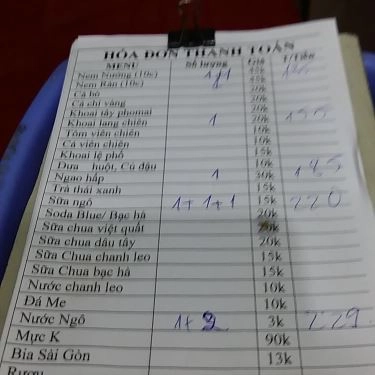 HÓA ĐƠN THANH TOÁN
MENU Số lượng Giá T/Tiền
Nem Nướng (10c) 1+1 45k
Nem Rán (10c) 45k
Cá bò 20k
Cá chỉ vàng 20k
Khoai tây phomai 20k
Khoai lang chiên 1 20k 155
Tôm viên chiên 10k
Cá viên chiên 10k
Khoai lệ phố 15k
Dưa chuột, Củ đậu 10k
Ngao hấp 1 30k 185
Trà thái xanh 15k
Sữa ngô 1+1+1 15k 220
Soda Blue/ Bạc hà 20k
Sữa chua việt quất 20k
Sữa chua dâu tây 20k
Sữa Chua chanh leo 15k
Sữa Chua bạc hà 15k
Nước chanh leo 10k
Đá Me 10k
Nước Ngô 1+2 3k 229
Mực K 90k
Bia Sài Gòn 13k
Rượu